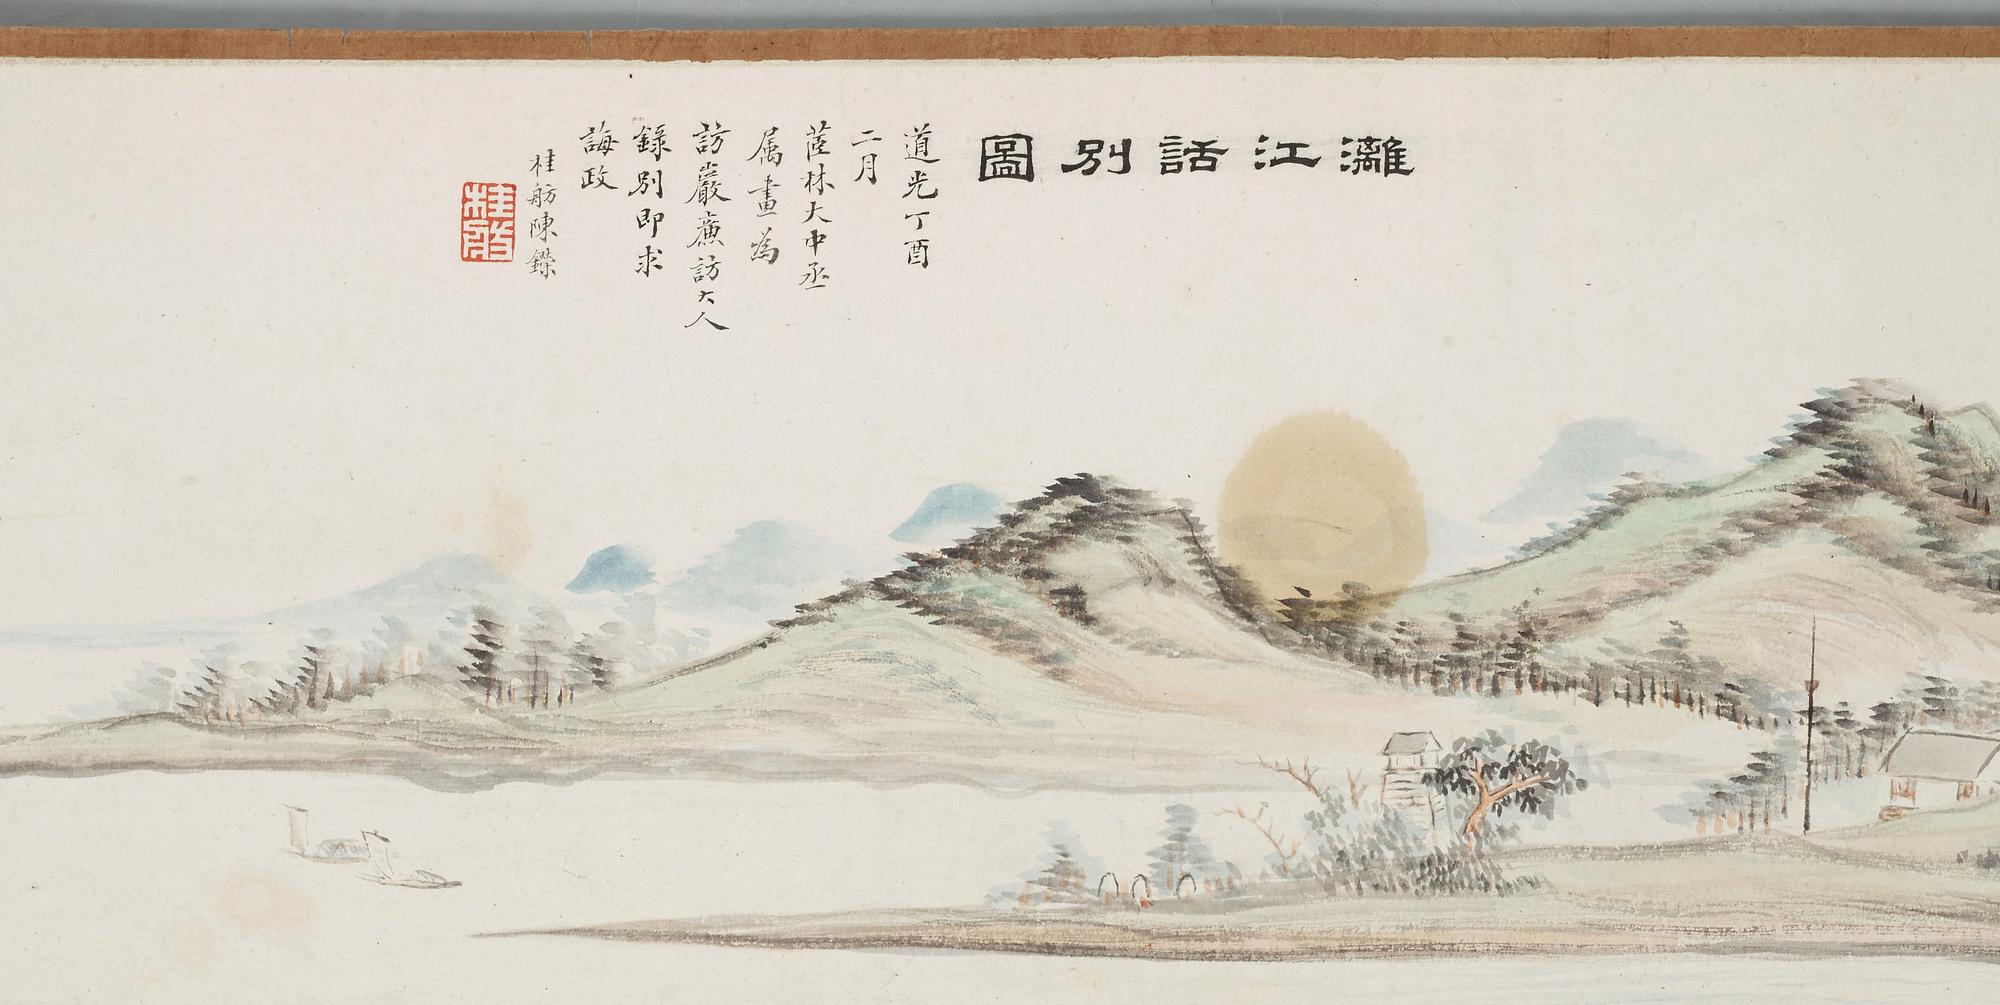 灕江話別圖
道光丁酉
二月
茝林大中丞
属畫為
訪巖廉訪大人
錄別即求
誨政
桂舫陳鑅
桂舫